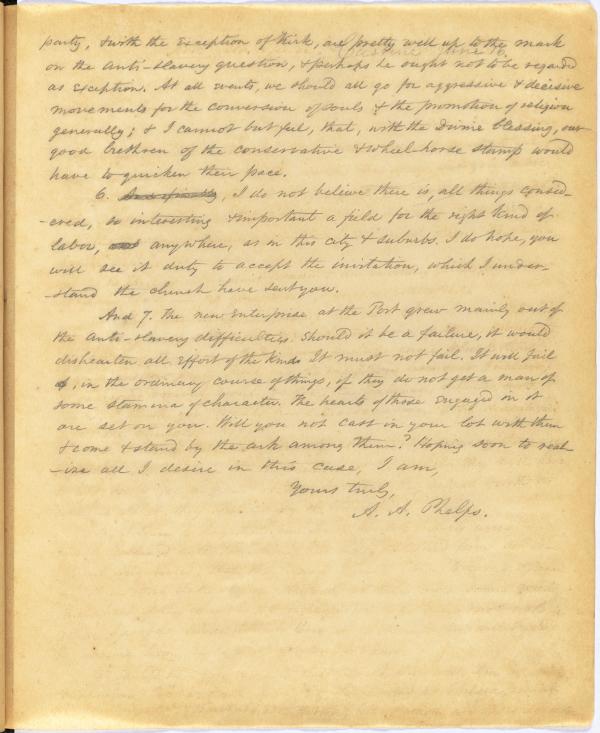 party, & with the exception of Kirk, are pretty well up to the mark
on the anti-slavery question, & perhaps he ought not to be regarded
as exception. At all events, we should all go for aggressive & decisive
movements for the conversion of souls & the promotion of religion
generally; & I cannot but feel, that, with the Divine blessing, our
good brethren of the conservative & wheel-horse stamp would
have to quicken their pace.
6. And finally, I do not believe there is, all things consid-
-ered, so interesting & important a field for the right kind of
labor, anywhere, as in this city & suburbs. I do hope, you
will see it duty to accept the invitation, which I under-
-stand the church have sent you.
And 7. The new enterprise at the Port grew mainly out of
the anti-slavery difficulties. Should it be a failure, it would
dishearten all effort of the kind. It must not fail. It will fail
, in the ordinary course of things, if they do not get a man of
some stamina of character. The hearts of those engaged in it
are set on you. Will you not cast in your lot with them
& come & stand by the ark among them? Hoping soon to real-
-ize all I desire in this case, I am,
Yours truly,
A. A. Phelps.